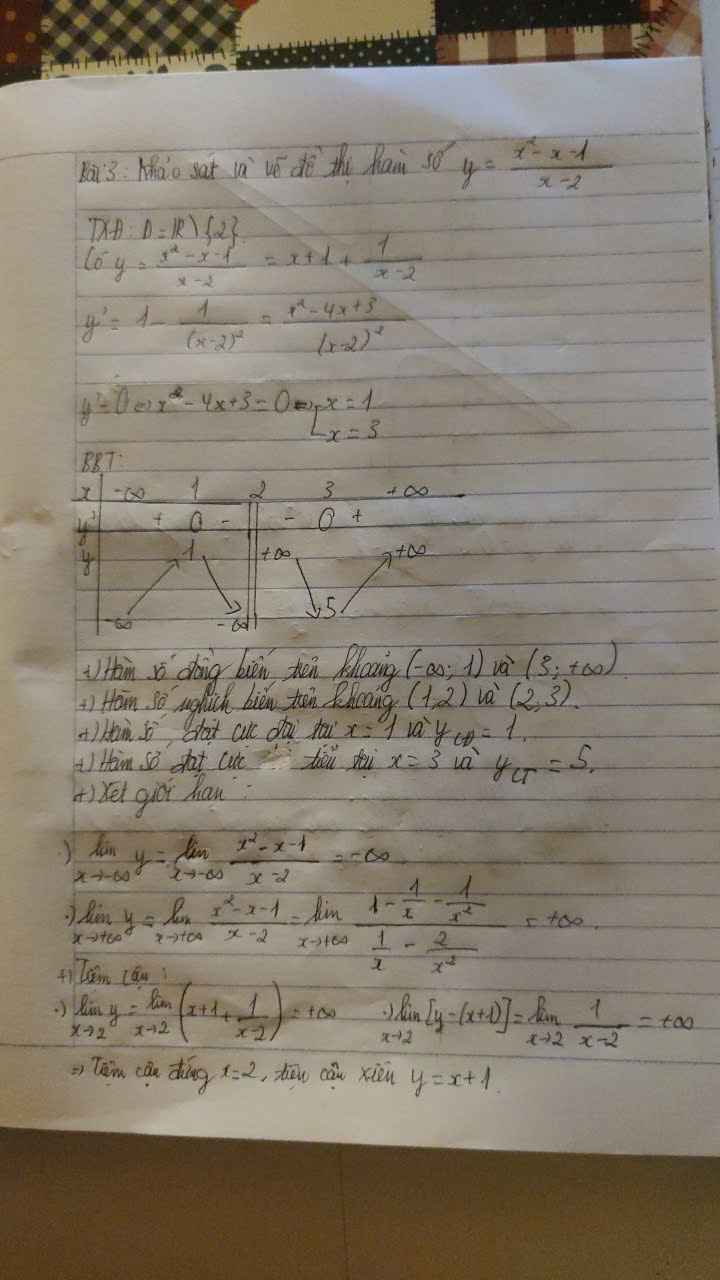 Bài 3: Khảo sát và vẽ đồ thị hàm số y = (x² - x - 1)/(x - 2)
TXĐ: D = ℝ \ {2}.
Có y = (x² - x - 1)/(x - 2) = x + 1 + 1/(x - 2)
y' = 1 - 1/(x-2)² = (x² - 4x + 3)/(x-2)²
y' = 0 ⇔ x² - 4x + 3 = 0 ⇔ [x = 1
x = 3
BBT:
x -∞ 1 2 3 +∞
y' + 0 - || - 0 +
y 1 || +∞ +∞
-∞ -∞ || 5
+) Hàm số đồng biến trên khoảng (-∞; 1) và (3; +∞)
+) Hàm số nghịch biến trên khoảng (1,2) và (2,3).
+) Hàm số đạt cực đại tại x = 1 và y_CĐ = 1.
+) Hàm số đạt cực tiểu tại x = 3 và y_CT = 5.
+) Xét giới hạn :
·) lim x→-∞ y = lim x→-∞ (x² - x - 1)/(x - 2) = -∞
·) lim x→+∞ y = lim x→+∞ (x² - x - 1)/(x - 2) = lim x→+∞ (1 - 1/x - 1/x²)/(1/x - 2/x²) = +∞.
+) Tiệm cận :
·) lim x→2 y = lim x→2 (x + 1 + 1/(x-2)) = +∞ ·) lim x→2 [y - (x+1)] = lim x→2 1/(x-2) = +∞
⇒ Tiệm cận đứng x = 2, tiệm cận xiên y = x + 1.